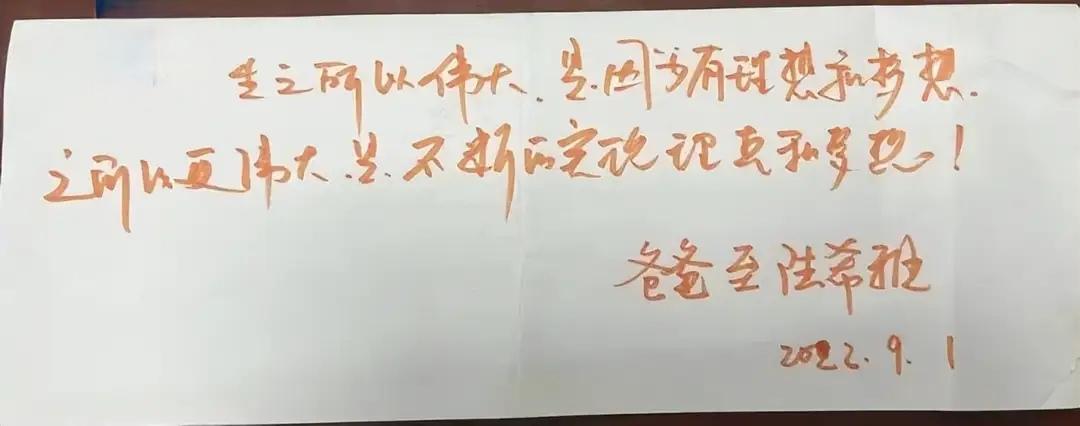 生之所以伟大.是.因为有理想和梦想.
之所以更伟大.是.不断的实现理想和梦想.!
爸爸至陆希雅
2022.9.1